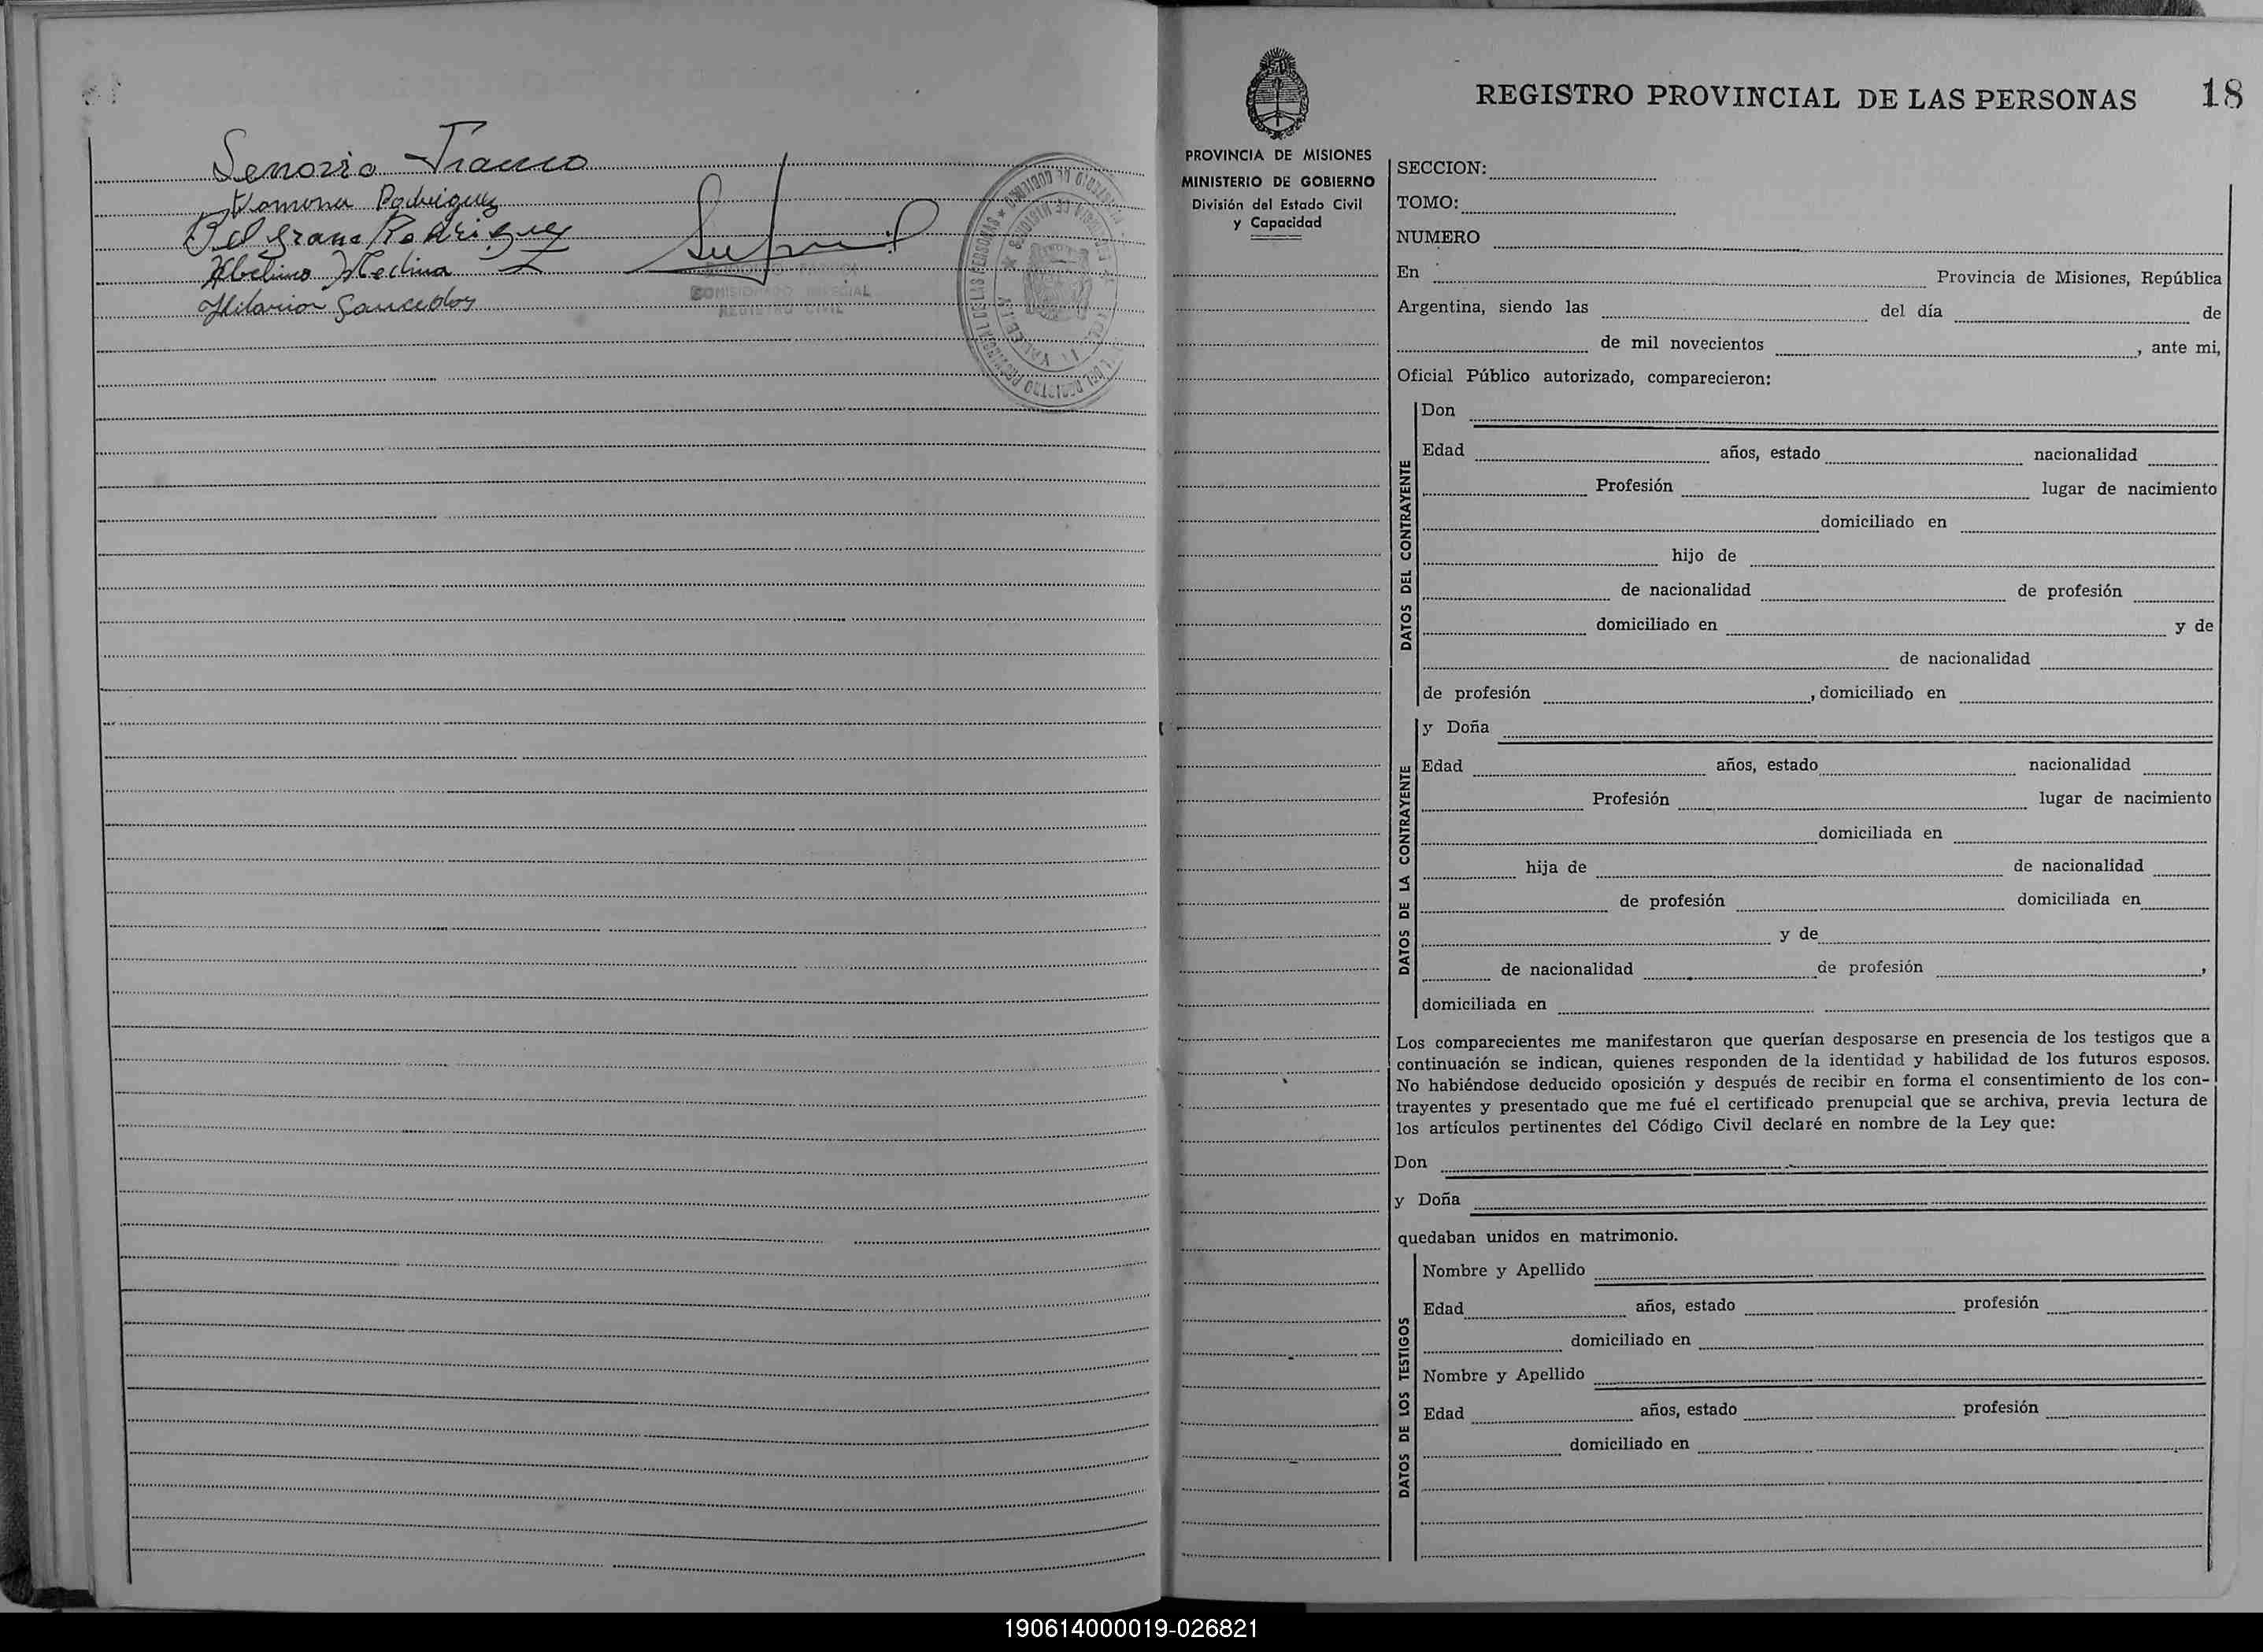 Senorio Franco
Ramona Rodriguez
Belgrano Rodriguez
Abelino Medina
Hilarion Saucedos
COMISIONADO ESPECIAL
REGISTRO CIVIL
REGISTRO PROVINCIAL DE LAS PERSONAS 18
PROVINCIA DE MISIONES
MINISTERIO DE GOBIERNO
División del Estado Civil
y Capacidad
SECCION:
TOMO:
NUMERO
En Provincia de Misiones, República
Argentina, siendo las del día de
de mil novecientos , ante mi,
Oficial Público autorizado, comparecieron:
DATOS DEL CONTRAYENTE
Don
Edad años, estado nacionalidad
Profesión lugar de nacimiento
domiciliado en
hijo de
de nacionalidad de profesión
domiciliado en y de
de nacionalidad
de profesión , domiciliado en
DATOS DE LA CONTRAYENTE
y Doña
Edad años, estado nacionalidad
Profesión lugar de nacimiento
domiciliada en
hija de de nacionalidad
de profesión domiciliada en
y de
de nacionalidad de profesión ,
domiciliada en
Los comparecientes me manifestaron que querían desposarse en presencia de los testigos que a
continuación se indican, quienes responden de la identidad y habilidad de los futuros esposos.
No habiéndose deducido oposición y después de recibir en forma el consentimiento de los con-
trayentes y presentado que me fué el certificado prenupcial que se archiva, previa lectura de
los artículos pertinentes del Código Civil declaré en nombre de la Ley que:
Don
y Doña
quedaban unidos en matrimonio.
DATOS DE LOS TESTIGOS
Nombre y Apellido
Edad años, estado profesión
domiciliado en
Nombre y Apellido
Edad años, estado profesión
domiciliado en
190614000019-026821